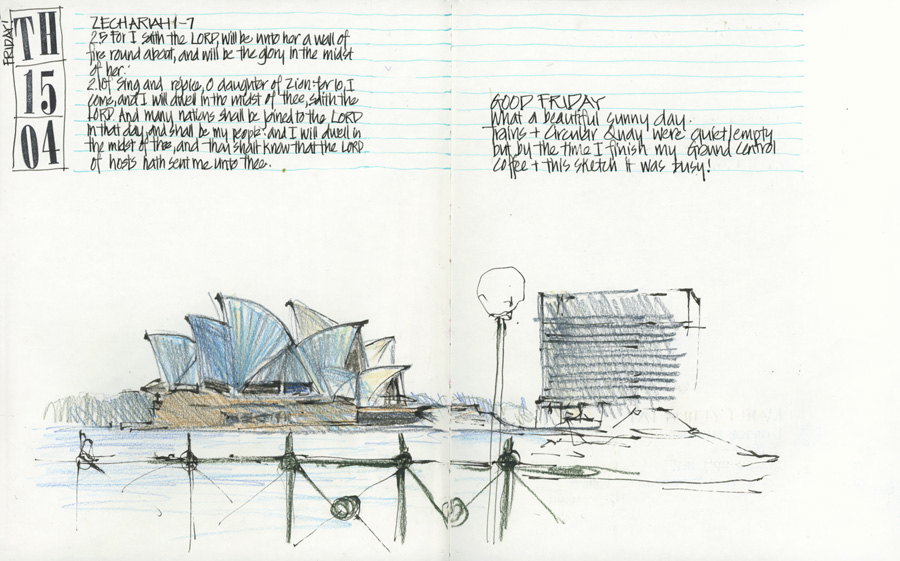 FRIDAY!
TH
15
04
ZECHARIAH 1-7
2.5 For I saith the LORD, will be unto her a wall of
fire round about, and will be the glory in the midst
of her.'
2.10f Sing and rejoice, O daughter of Zion: for lo, I
come, and I will dwell in the midst of thee, saith the
LORD. And many nations shall be joined to the LORD
in that day, and shall be my people: and I will dwell in
the midst of thee, and thou shalt know that the LORD
of hosts hath sent me unto thee.
GOOD FRIDAY
what a beautiful sunny day.
trains + Circular Quay were quiet/empty
but by the time I finish my Ground Control
Coffee + this sketch it was busy!